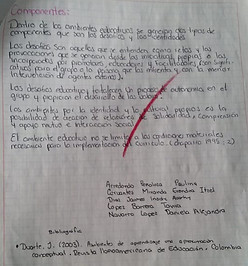 Componentes:
Dentro de los ambientes educativos se conjugan dos tipos de
componentes que son los desafíos y las identidades.
Los desafíos son aquellos que se entienden como retos y las
provocaciones que se generan desde las iniciativas propias o las
incorporadas por promotores, educadores y facilitadores
para el grupo
intervención de agentes externos
Los desafíos educativos fortalecen un proceso de autonomía en el
grupo y propician el desarrollo de los
Los ambientes por la identidad y lo propios es la
posibilidad de creación de relaciones de solidaridad, comprensión
y apoyo mutuo e interacción social.
El ambiente educativo no se limita a las condiciones materiales
necesarias para la implementación del currículo. 1995: 2)
Arredondo Peñaloza Paulina
Cifuentes Miranda Itzel
Diaz Jaime
Lopez Barrera Tania
Navarro Lopez Daniela Alejandra
Bibliografia
• Duarte, J. (2003). Ambientes de aprendizaje una aproximación
conceptual, Revista Iberoamericana de Educación, Colombia